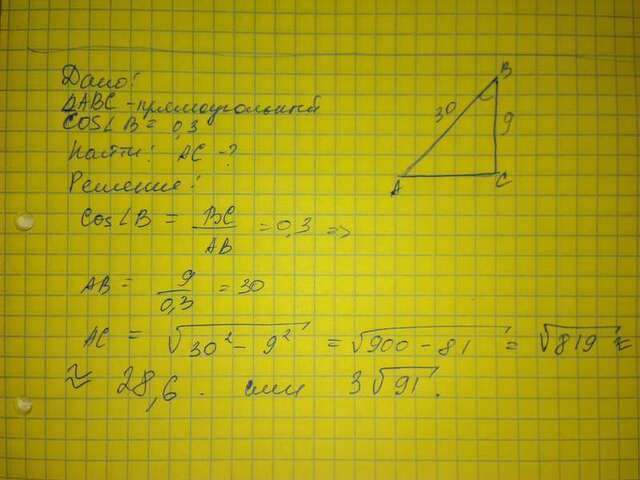 Дано:
ΔABC - прямоугольный
COS∠B = 0,3
Найти: AC - ?
Решение:
Cos∠B = BC/AB = 0,3 =>
AB = 9/0,3 = 30
AC = √(30² - 9²) = √(900 - 81) = √819 ≈
≈ 28,6. или 3√91.
B
30
9
A
C